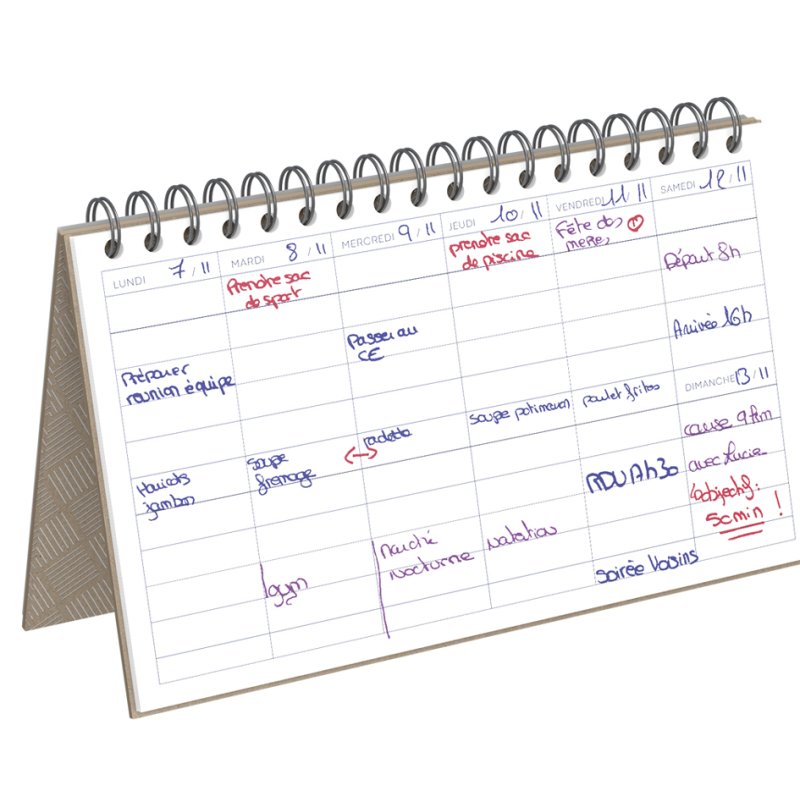 LUNDI 7 / 11
Préparer
réunion équipe
Haricots
jambon
MARDI 8 / 11
Prendre sac
de sport
soupe
fromage
gym
MERCREDI 9 / 11
Passer au
CE
raclette
marché
nocturne
JEUDI 10 / 11
prendre sac
de piscine
soupe potimarron
natation
VENDREDI 11 / 11
Fête des
mères
poulet frites
soirée Voisins
SAMEDI 12 / 11
Départ 8h
Arrivée 16h
DIMANCHE 13 / 11
course 9 km
avec Lucie
objectif :
50 min !